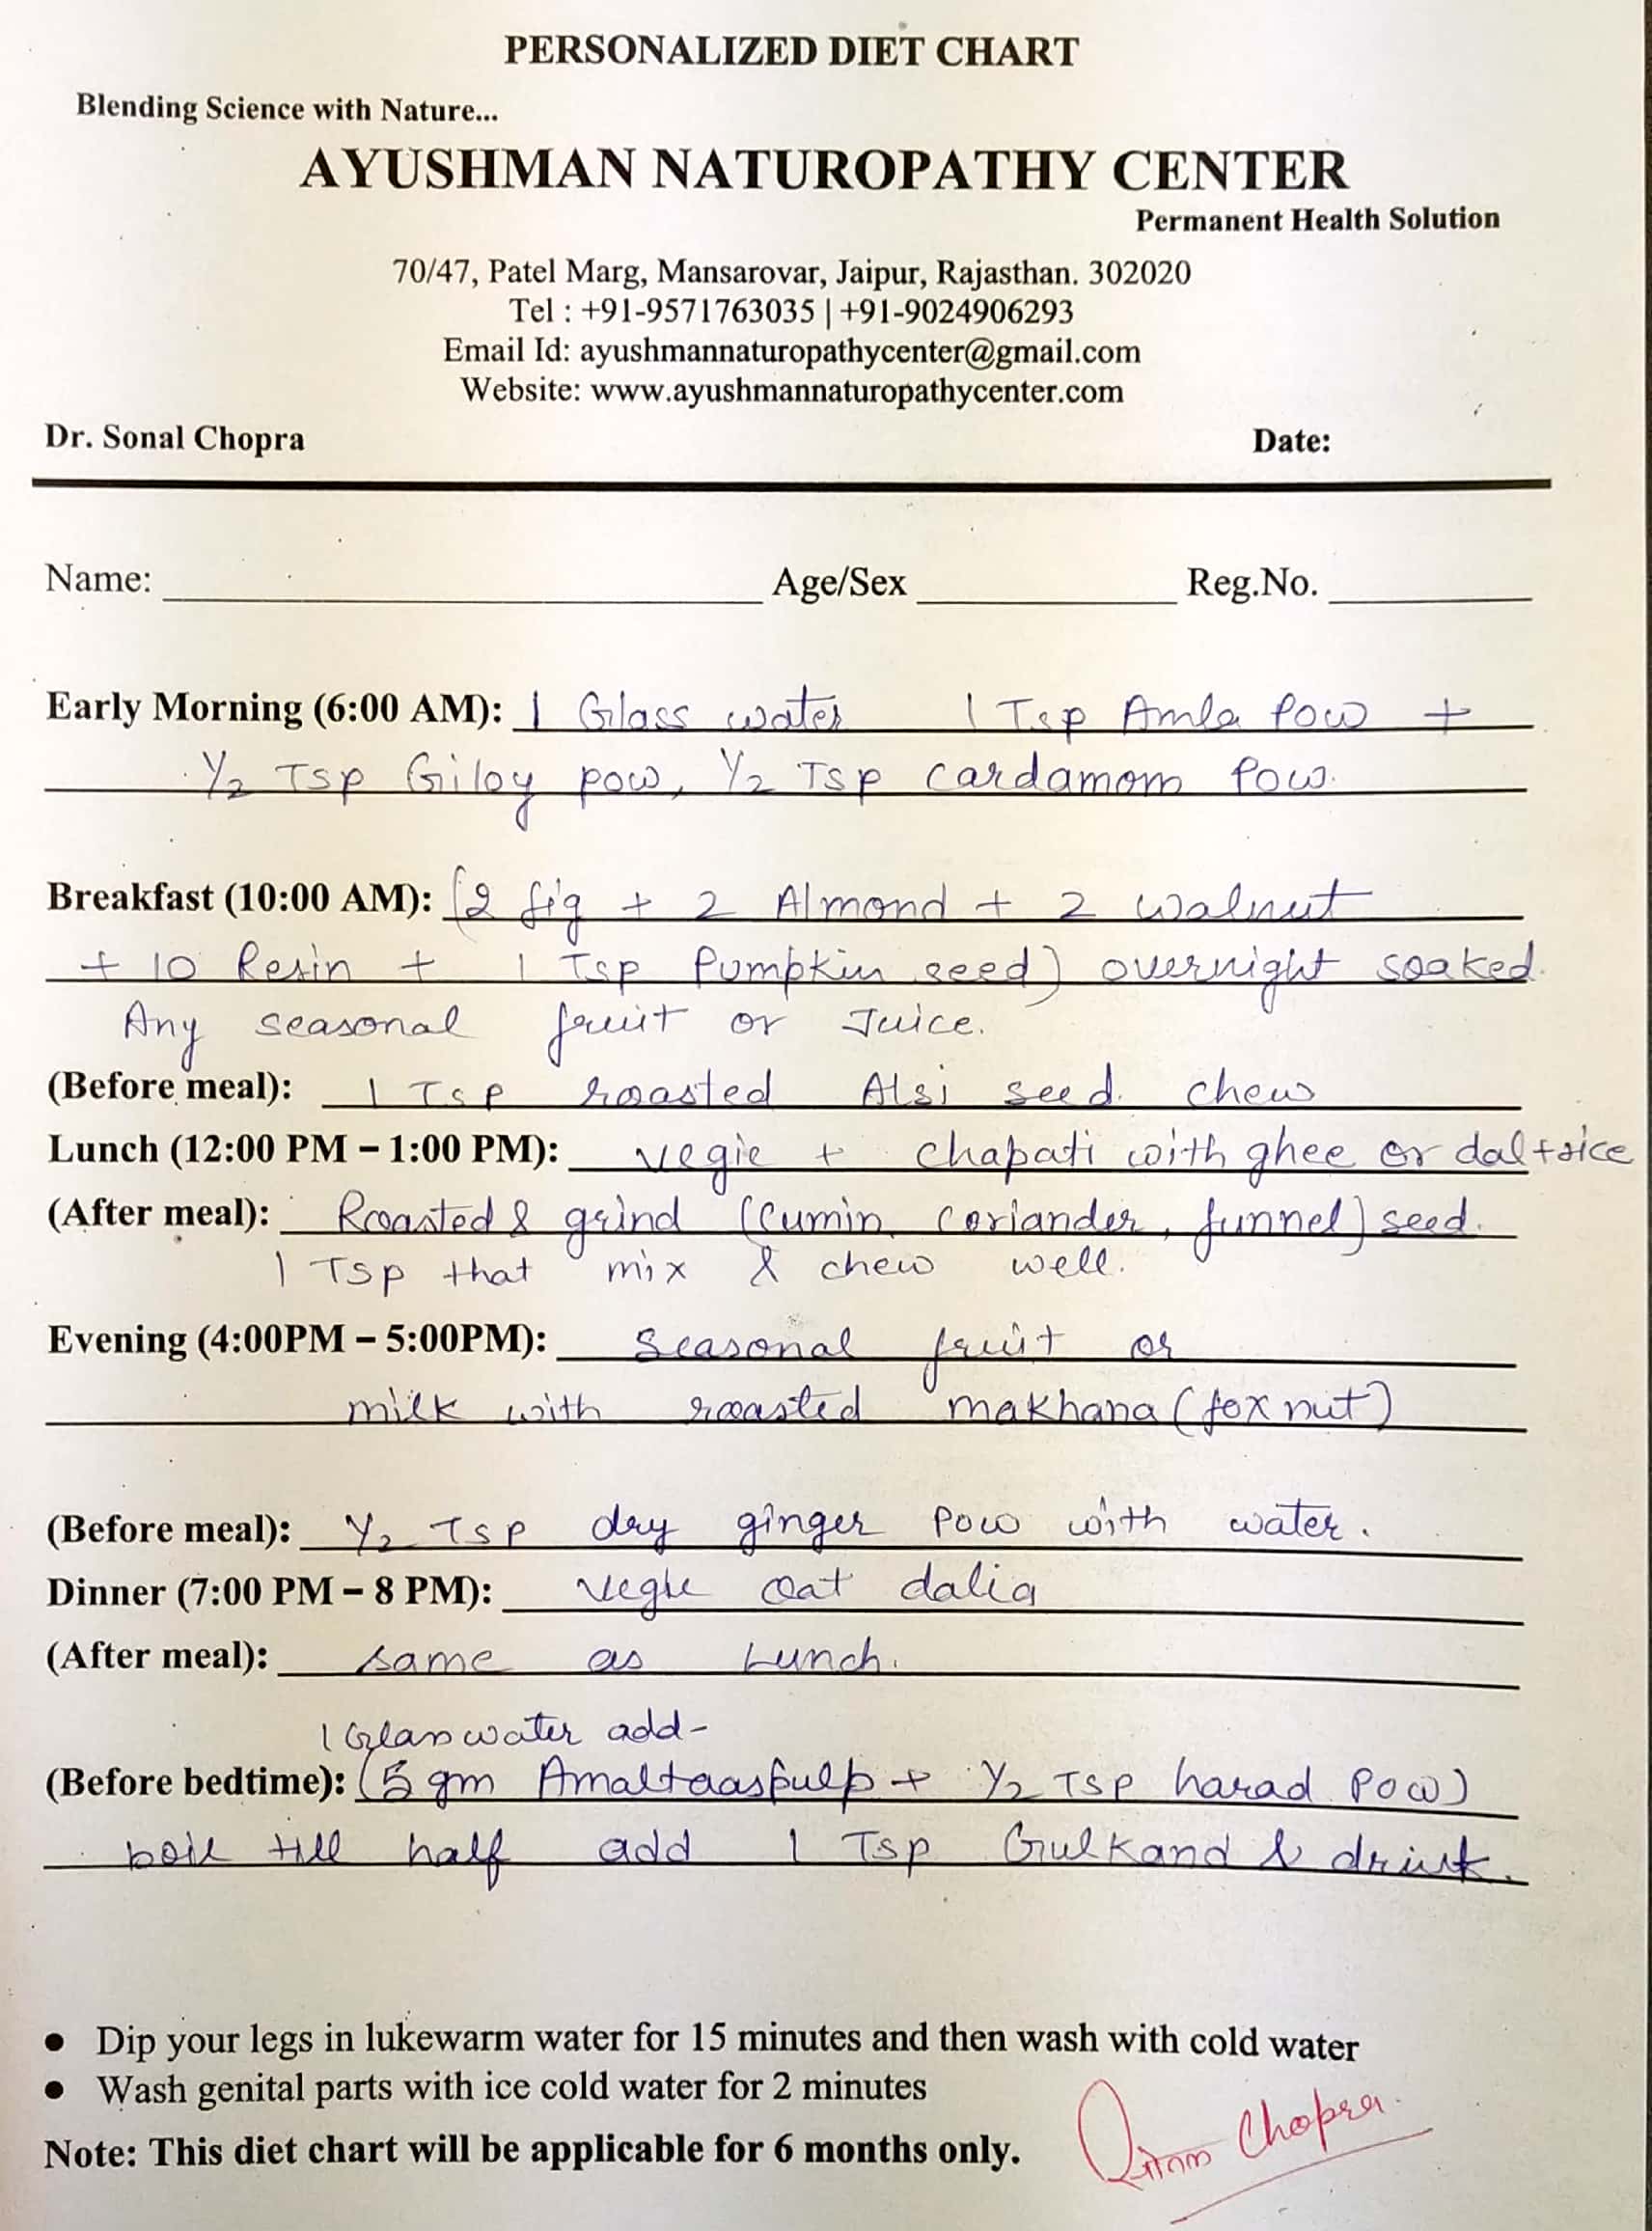 PERSONALIZED DIET CHART
Blending Science with Nature...
AYUSHMAN NATUROPATHY CENTER
Permanent Health Solution
70/47, Patel Marg, Mansarovar, Jaipur, Rajasthan. 302020
Tel : +91-9571763035 | +91-9024906293
Email Id: ayushmannaturopathycenter@gmail.com
Website: www.ayushmannaturopathycenter.com
Dr. Sonal Chopra Date:
Name: Age/Sex Reg.No.
Early Morning (6:00 AM): 1 Glass water 1 Tsp Amla Pow +
1/2 Tsp Giloy pow, 1/2 Tsp cardamom Pow.
Breakfast (10:00 AM): (2 fig + 2 Almond + 2 walnut
+ 10 Resin + 1 Tsp Pumpkin seed) overnight soaked.
Any seasonal fruit or Juice.
(Before meal): 1 Tsp roasted Alsi seed. chew
Lunch (12:00 PM – 1:00 PM): vegie + chapati with ghee or dal+rice
(After meal): Roasted & grind (cumin, coriander, funnel) seed.
1 Tsp that mix & chew well.
Evening (4:00PM – 5:00PM): Seasonal fruit or
milk with roasted makhana (fox nut)
(Before meal): 1/2 Tsp dry ginger Pow with water.
Dinner (7:00 PM – 8 PM): vegie oat dalia
(After meal): same as Lunch.
1 Glass water add-
(Before bedtime): (5 gm Amaltaaspulp + 1/2 Tsp harad Pow)
boil till half add 1 Tsp Gulkand & drink.
• Dip your legs in lukewarm water for 15 minutes and then wash with cold water
• Wash genital parts with ice cold water for 2 minutes
Note: This diet chart will be applicable for 6 months only.
Chopra